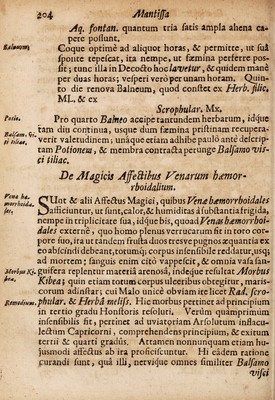 204 Mantissa
Aq. fontan. quantum tria satis ampla ahena ca-
pere possunt.
Balneum, Coque optimè ad aliquot horas, & permitte, ut sub
sponte tepescat, ita nempe, ut fœmina perferre pos-
sit; tunc illa in Decocto hoc lavetur, & quidem manè
per duas horas; vesperi verò per unam horam. Quin-
to die renova Balneum, quod constet ex Herb. filic.
ML. & ex
Scrophular. Mx.
Potio. Pro quarto Balneo accipe tantundem herbarum, idque
tam diu continua, usque dum fœmina pristinam recupera-
Balsam. vi- verit valetudinem; unàque etiam adhibe paulò antè descrip-
sci tiliac. tam Potionem, & membra contracta perunge Balsamo vis-
ci tiliac.
De Magicis Affectibus Venarum hæmor-
rhoidalium.
Venæ hæ- SUnt & alii Affectus Magici, quibus Venæ hæmorrhoidales
morrhoida- afficiuntur, ut sunt, calor, & humiditas à substantia frigida,
les. nempe in triplicitate sua, idque bis, quoad Venas hæmorrhoi-
dales externè, quo homo plenus verrucarum fit in toto cor-
pore suo, ira ut tandem frusta duos tresve pugnos æquantia ex
eo abscindi debeant, totumq; corpus insensibile reddatur, usq;
ad mortem; sanguis enim citò vappescit, & omnia vasa san-
Morbus Ki- guifera replentur materiâ arenosâ, indeque resultat Morbus
bea. Kibea; quin etiam totum corpus ulceribus obtegitur, maris-
corum adinstar; cui Malo unicè obviam ire licet Rad. scro-
Remedium. phular. & Herbâ meliss. Hic morbus pertinet ad principium
in tertio gradu Honstoris resoluri. Verùm quamprimum
insensibilis fit, pertinet ad uviatoriam Arsolutum instacu-
lectum Capricorni, comprehendens principium, & exitum
tertii & quarti gradûs. Attamen nonnunquam etiam hu-
jusmodi affectus ab ira proficiscuntur. Hi eâdem ratione
curandi sunt, quâ illi, nervique omnes similiter Balsamo
visci